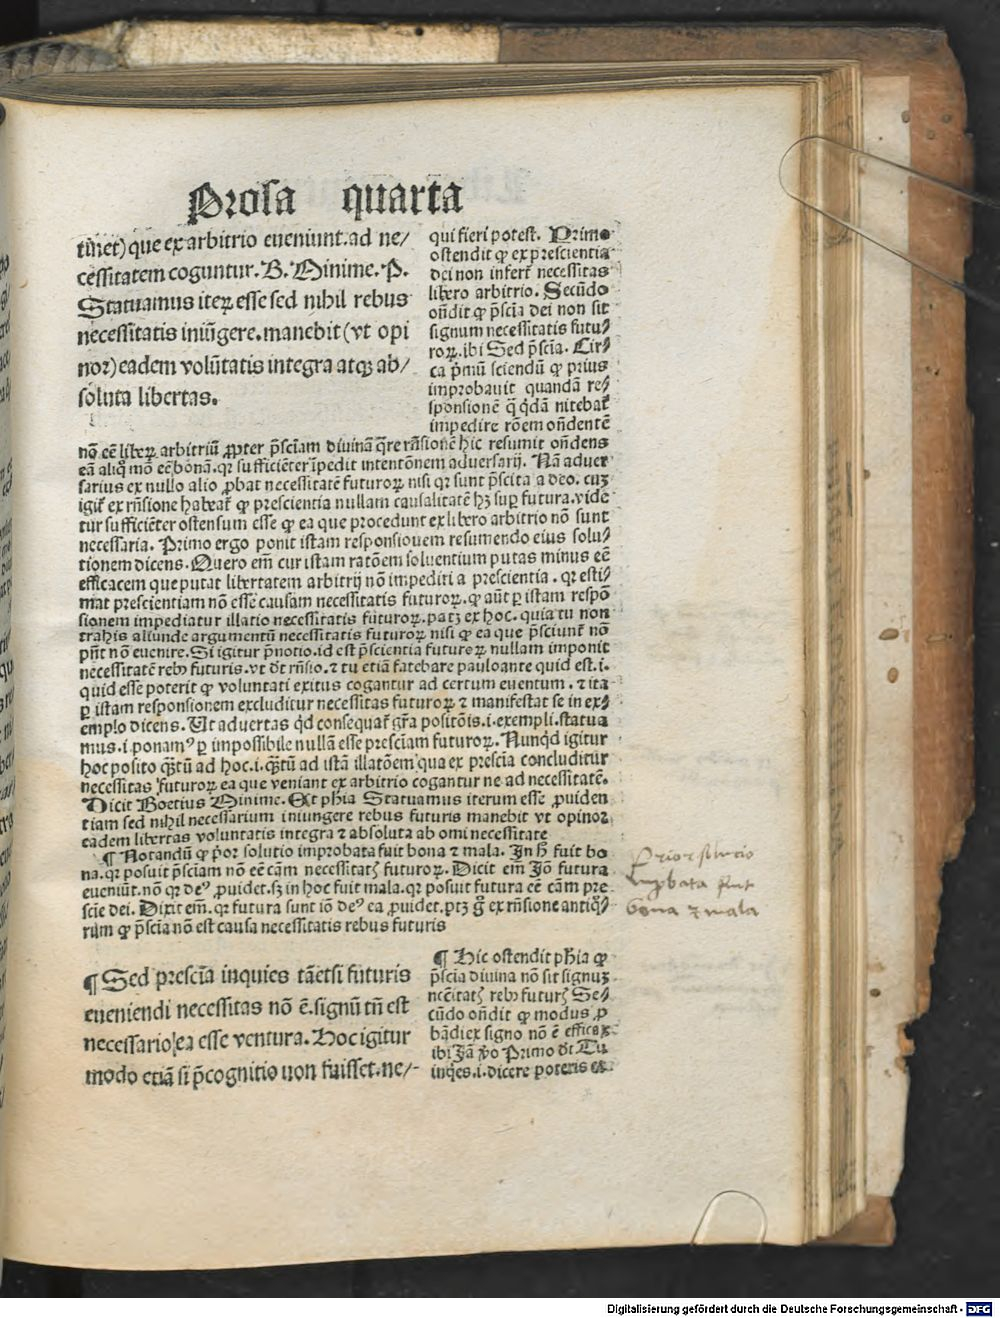 Prosa quarta
tinet) que ex arbitrio eueniunt.ad ne/
cessitatem coguntur. B. Minime. P.
Statuamus iteꝝ esse sed nihil rebus
necessitatis iniũgere.manebit (vt opi
nor) eadem volũtatis integra atqꝫ ab/
soluta libertas.
qui fieri potest. Primo
ostendit ꝙ ex prescientia
dei non infert᷑ necessitas
libero arbitrio. Secũdo
oñdit ꝙ p̃scia dei non sit
signum necessitatis futu/
roꝝ.ibi Sed p̃scia. Cir/
ca p̃mũ sciendũ ꝙ prius
improbauit quandã re/
sponsionẽ q̃ q̃dã nitebat᷑
impedire rõem oñdentẽ
nõ eẽ liberꝝ arbitriũ ꝓpter p̃sciam diuinã q̃re rñsionẽ hic resumit oñdens
eã aliq̃ mõ eẽ bonã.qꝛ sufficiẽter ĩpedit intentõnem aduersarij. Nã aduer
sarius ex nullo alio ꝓbat necessitatẽ futuroꝝ nisi qꝛ sunt p̃scita a deo. cuꝫ
igit᷑ ex rñsione habeat᷑ ꝙ prescientia nullam causalitatẽ hꝫ suꝑ futura.vide
tur sufficiẽter ostensum esse ꝙ ea que procedunt ex libero arbitrio nõ sunt
necessaria. Primo ergo ponit istam responsiouem resumendo eius solu/
tionem dicens. Quero em̃ cur istam ratõem soluentium putas minus eẽ
efficacem que putat libertatem arbitrij nõ impediri a prescientia. qꝛ esti/
mat prescientiam nõ esse causam necessitatis futuroꝝ. ꝙ aũt ꝑ istam respõ
sionem impediatur illatio necessitatis futuroꝝ.patꝫ ex hoc. quia tu non
trahis aliunde argumentũ necessitatis futuroꝝ nisi ꝙ ea que p̃sciunt᷑ nõ
pñt nõ euenire. Si igitur p̃notio.id est p̃scientia futuroꝝ nullam imponit
necessitatẽ rebꝫ futuris.vt dt̃ rñsio.⁊ tu etiã fatebare pauloante quid est.i.
quid esse poterit ꝙ voluntati exitus cogantur ad certum euentum. ⁊ ita
ꝑ istam responsionem excluditur necessitas futuroꝝ ⁊ manifestat se in ex/
emplo dicens. Ut aduertas qd̃ consequat᷑ gr̃a positõis.i.exempli.statua
mus.i.ponamꝰ ꝑ impossibile nullã esse presciam futuroꝝ. Nunqd̃ igitur
hoc posito q̃tũ ad hoc.i.q̃tũ ad istã illatõem qua ex prescia concluditur
necessitas futuroꝝ ea que veniant ex arbitrio cogantur ne ad necessitatẽ.
Dicit Boetius Minime. Et ph̃ia Statuamus iterum esse ꝓuiden
tiam sed nihil necessarium iniungere rebus futuris manebit vt opinoꝛ
eadem libertas voluntatis integra ⁊ absoluta ab omi necessitate
¶ Notandũ ꝙ p̃or solutio improbata fuit bona ⁊ mala. In h̃ fuit bo
na.qꝛ posuit p̃sciam nõ eẽ cãm necessitatꝭ futuroꝝ. Dicit em̃ Iõ futura
eueniũt.nõ qꝛ deꝰ ꝓuidet.sꝫ in hoc fuit mala.qꝛ posuit futura eẽ cãm pre
scie dei. Dixit em̃. qꝛ futura sunt iõ deꝰ ea ꝓuidet.ptꝫ g̃ ex rñsione antiq̃/
rum ꝙ p̃scia nõ est causa necessitatis rebus futuris
Prior solucio
improbata fuit
bona ⁊ mala
¶ Sed prescia inquies tãetsi futuris
eueniendi necessitas nõ ẽ.signũ tñ est
necessario ea esse ventura. Hoc igitur
modo etiã si p̃cognitio non fuisset.ne/
¶ Hic ostendit ph̃ia ꝙ
p̃scia diuina nõ sit signuꝫ
ncc̃itatꝭ rebꝫ futurꝭ Se/
cũdo oñdit ꝙ modus ꝓ
bãdi ex signo nõ ẽ efficax
ibi Iã ṽo Primo dt̃ Tu
inq̃es.i.dicere poteris